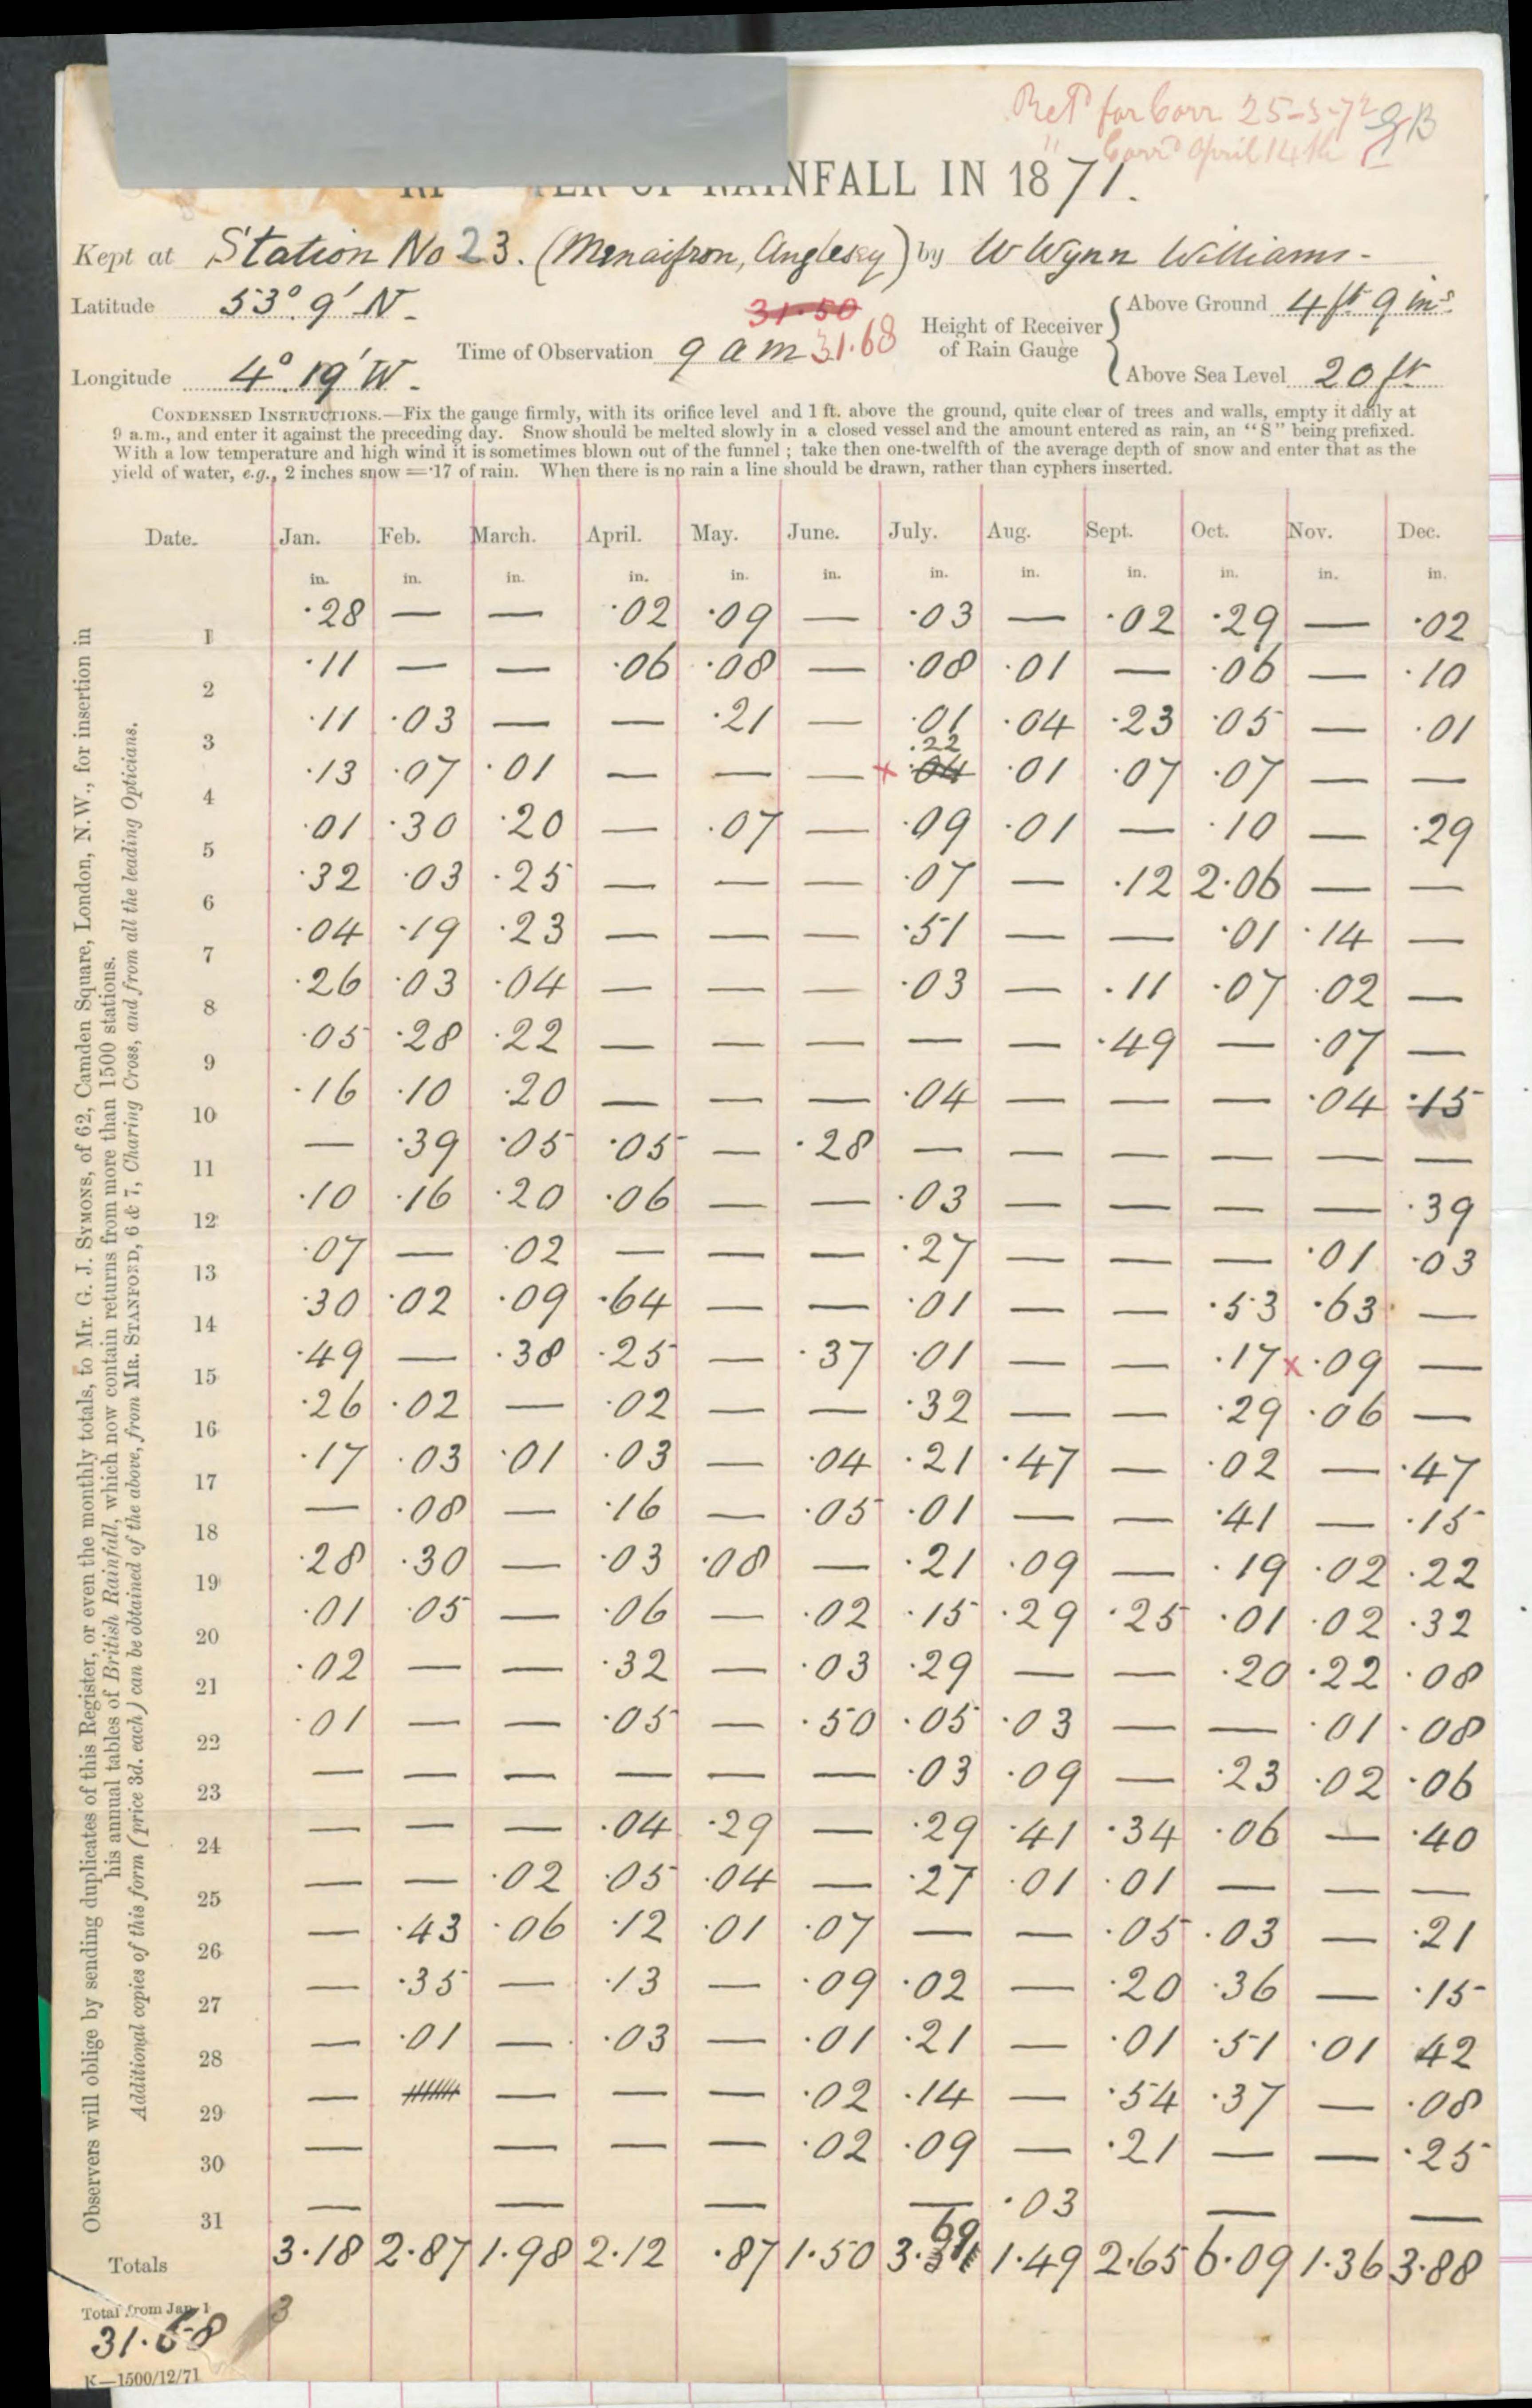 Retd for Corr 25-3-72 GB
" Corrd April 14th
NFALL IN 1871.
Kept at Station No 23. (Menaifron, Anglesey) by W Wynn Williams -
Latitude 53° 9' N -
31.50
Time of Observation 9 am 31.68
Height of Receiver of Rain Gauge
Above Ground 4 ft 9 ins
Longitude 4° 19' W -
Above Sea Level 20 ft
CONDENSED INSTRUCTIONS.—Fix the gauge firmly, with its orifice level and 1 ft. above the ground, quite clear of trees and walls, empty it daily at
9 a.m., and enter it against the preceding day. Snow should be melted slowly in a closed vessel and the amount entered as rain, an "S" being prefixed.
With a low temperature and high wind it is sometimes blown out of the funnel ; take then one-twelfth of the average depth of snow and enter that as the
yield of water, e.g., 2 inches snow =·17 of rain. When there is no rain a line should be drawn, rather than cyphers inserted.
Date. Jan. Feb. March. April. May. June. July. Aug. Sept. Oct. Nov. Dec.
in. in. in. in. in. in. in. in. in. in. in. in.
1 ·28 — — ·02 ·09 — ·03 — ·02 ·29 — ·02
2 ·11 — — ·06 ·08 — ·08 ·01 — ·06 — ·10
3 ·11 ·03 — — ·21 — ·01 ·04 ·23 ·05 — ·01
·22
4 ·13 ·07 ·01 — — — × ·04 ·01 ·07 ·07 — —
5 ·01 ·30 ·20 — ·07 — ·09 ·01 — ·10 — ·29
6 ·32 ·03 ·25 — — — ·07 — ·12 2·06 — —
7 ·04 ·19 ·23 — — — ·51 — — ·01 ·14 —
8 ·26 ·03 ·04 — — — ·03 — ·11 ·07 ·02 —
9 ·05 ·28 ·22 — — — — — ·49 — ·07 —
10 ·16 ·10 ·20 — — — ·04 — — — ·04 ·15
11 — ·39 ·05 ·05 — ·28 — — — — — —
12 ·10 ·16 ·20 ·06 — — ·03 — — — — ·39
13 ·07 — ·02 — — — ·27 — — — ·01 ·03
14 ·30 ·02 ·09 ·64 — — ·01 — — ·53 ·63 —
15 ·49 — ·38 ·25 — ·37 ·01 — — ·17 × ·09 —
16 ·26 ·02 — ·02 — — ·32 — — ·29 ·06 —
17 ·17 ·03 ·01 ·03 — ·04 ·21 ·47 — ·02 — ·47
18 — ·08 — ·16 — ·05 ·01 — — ·41 — ·15
19 ·28 ·30 — ·03 ·08 — ·21 ·09 — ·19 ·02 ·22
20 ·01 ·05 — ·06 — ·02 ·15 ·29 ·25 ·01 ·02 ·32
21 ·02 — — ·32 — ·03 ·29 — — ·20 ·22 ·08
22 ·01 — — ·05 — ·50 ·05 ·03 — — ·01 ·08
23 — — — — — — ·03 ·09 — ·23 ·02 ·06
24 — — — ·04 ·29 — ·29 ·41 ·34 ·06 — ·40
25 — — ·02 ·05 ·04 — ·27 ·01 ·01 — — —
26 — ·43 ·06 ·12 ·01 ·07 — — ·05 ·03 — ·21
27 — ·35 — ·13 — ·09 ·02 — ·20 ·36 — ·15
28 — ·01 — ·03 — ·01 ·21 — ·01 ·51 ·01 42
29 — — — — ·02 ·14 — ·54 ·37 — ·08
30 — — — — ·02 ·09 — ·21 — — ·25
31 — — — — ·03 — —
Totals 3·18 2·87 1·98 2·12 ·87 1·50 3·69 1·49 2·65 6·09 1·36 3·88
Total from Jan 1
31·68
3
K—1500/12/71
Observers will oblige by sending duplicates of this Register, or even the monthly totals, to Mr. G. J. SYMONS, of 62, Camden Square, London, N.W., for insertion in
his annual tables of British Rainfall, which now contain returns from more than 1500 stations.
Additional copies of this form (price 3d. each) can be obtained of the above, from MR. STANFORD, 6 & 7, Charing Cross, and from all the leading Opticians.